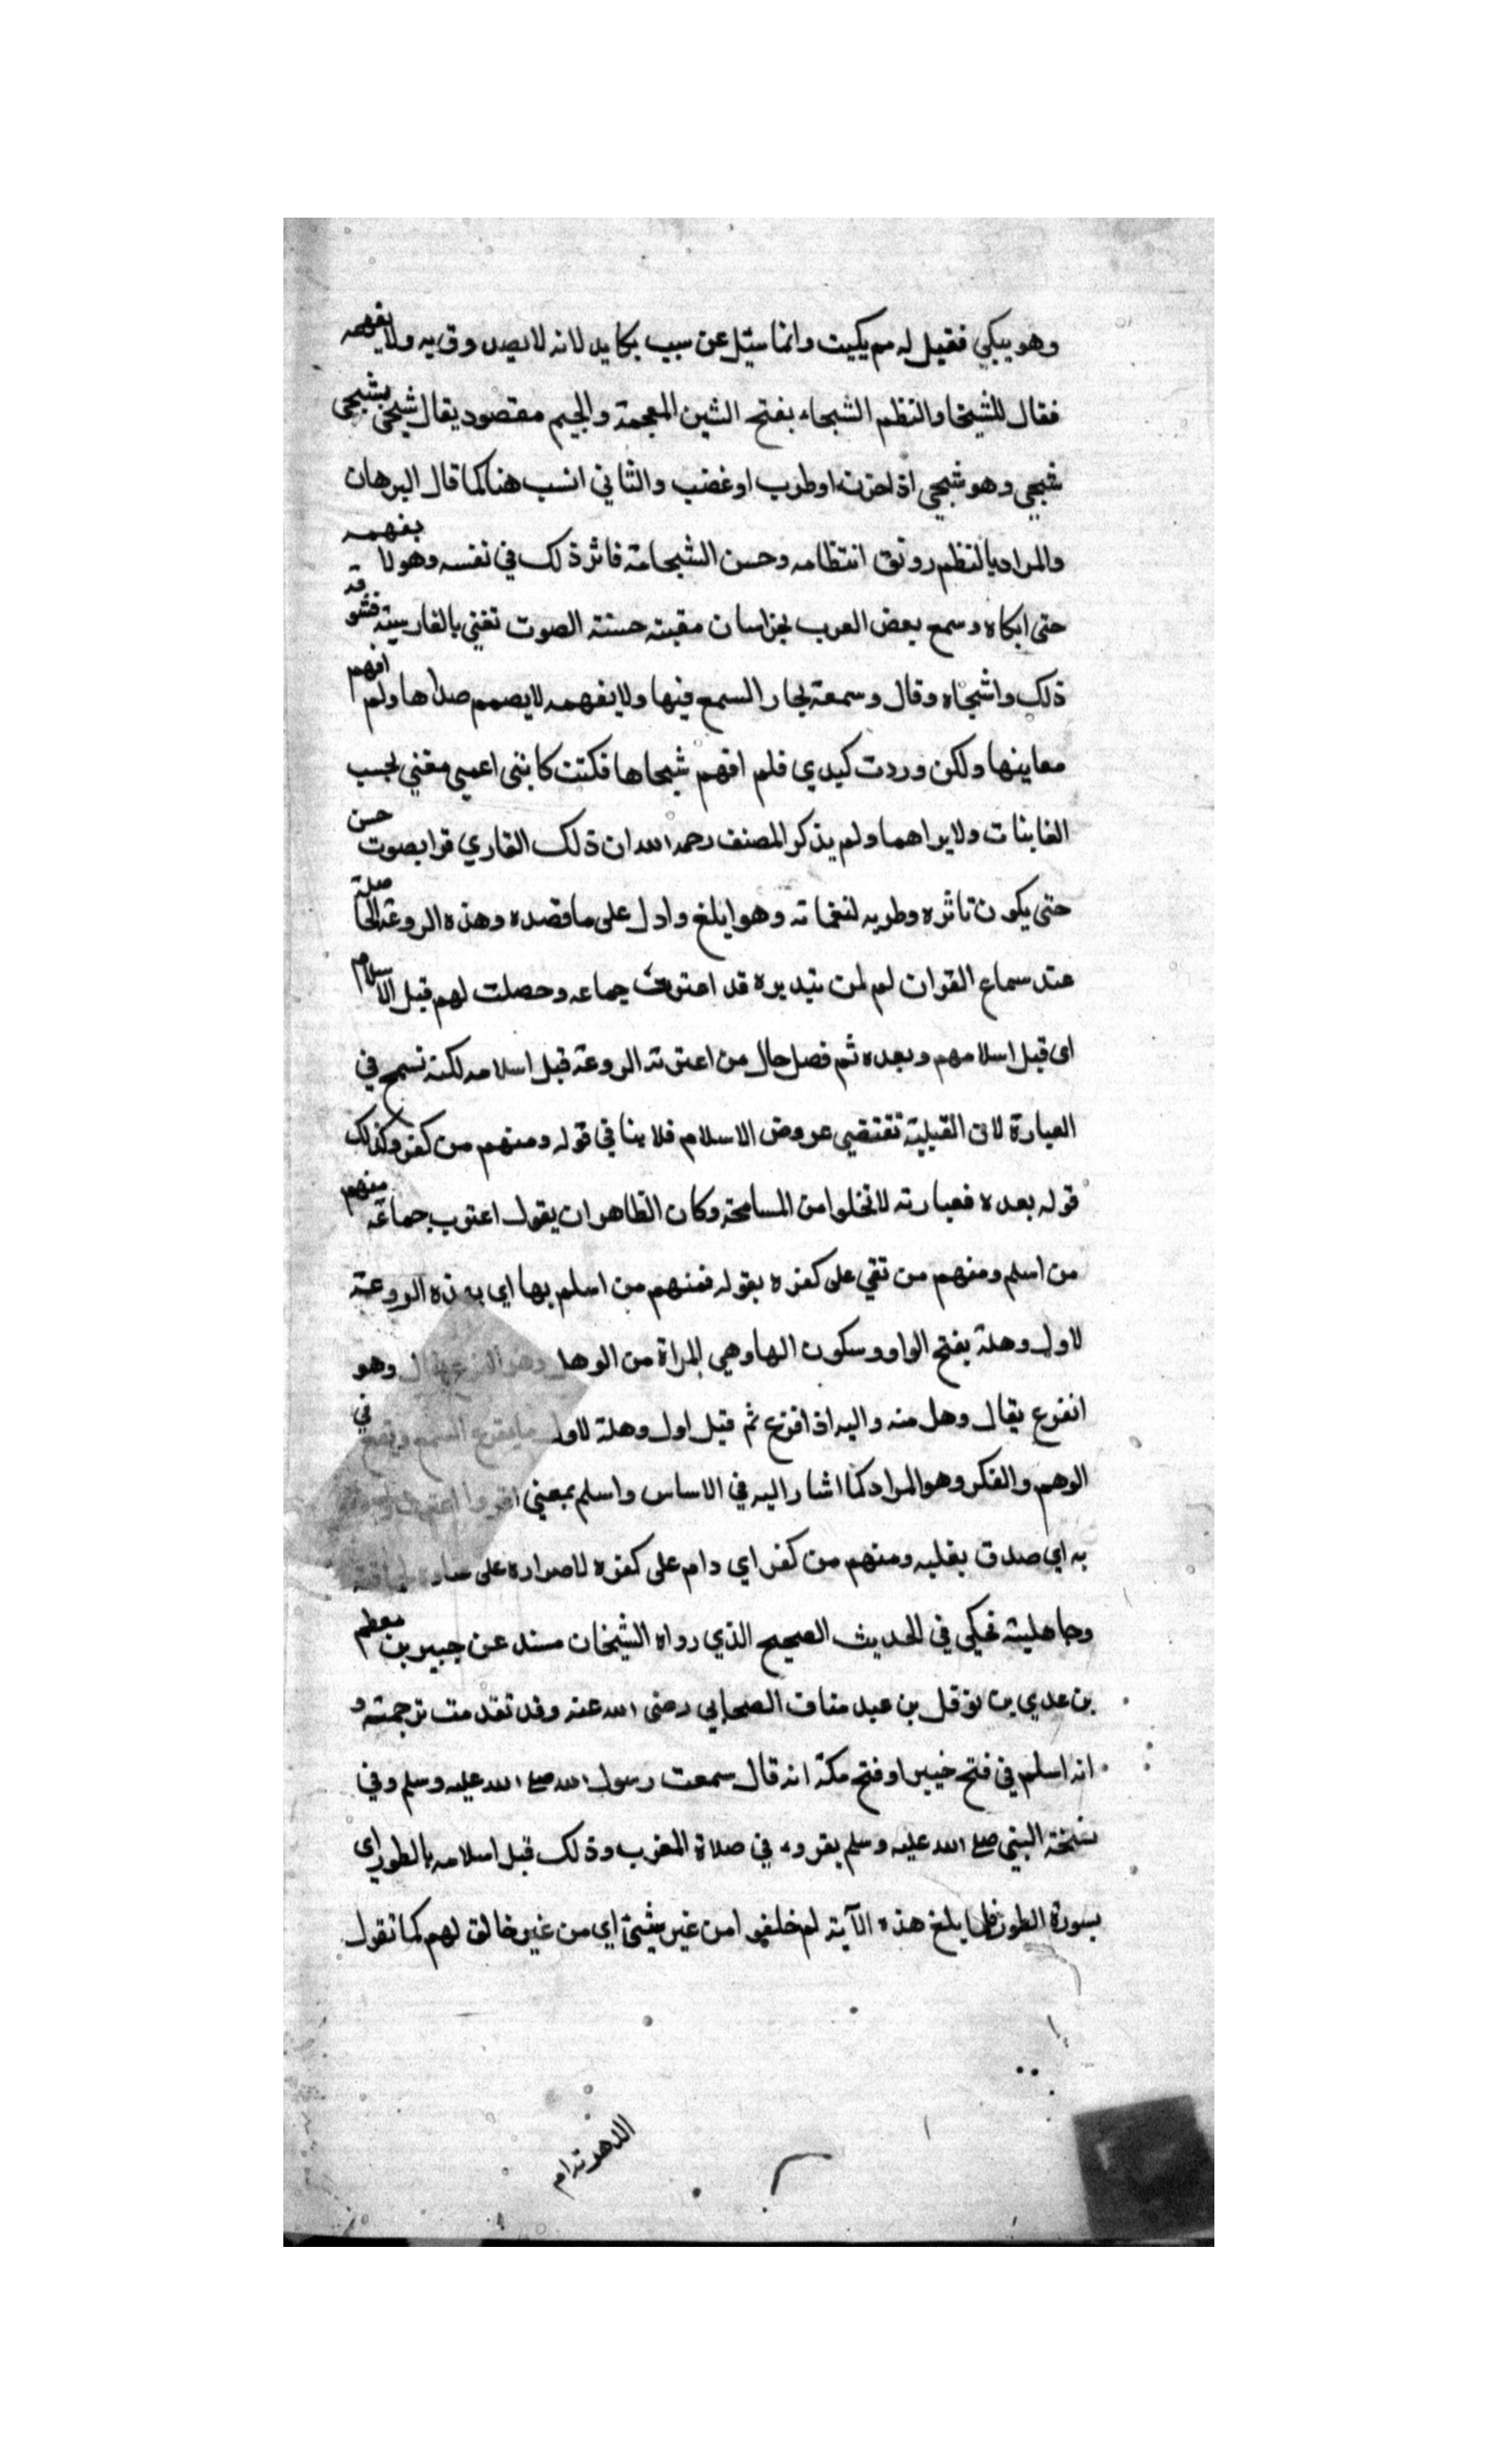 وهو يبكي فقيل له مم بكيت وانما سئل عن سبب بكايه لانه لا يصدق به ولا يفهمه
فقال للشجا والنظم الشجاء بفتح الشين المعجمة والجيم مقصود يقال شجى يشجى
شجي وهو شجي اذا حزن او طرب او غضب والثاني انسب هنا كما قال البرهان
والمراد بالنظم رونق انتظامه وحسن انسجامه فاثر ذلك في نفسه وهو لا يفهمه
حتى ابكاه وسمع بعض العرب بخراسان مغنية حسنة الصوت تغني بالفارسية فشوقه
ذلك واشجاه وقال وسمعة يحار السمع فيها ولا يفهمه لا يصمم صداها ولم افهم
معاينها ولكن وردت كبدي فلم افهم شجاها فكنت كانني اعمى معنى بحب
الغانيات ولا يراهما ولم يذكر المصنف رحمه الله ان ذلك القاري قرا بصوت حسن
حتى يكون تاثره وطربه لنغماته وهو ابلغ وادل على ما قصده وهذه الروعة الحاصلة
عند سماع القران لم لمن يتدبره قد اعترت جماعه وحصلت لهم قبل الاسلام
اى قبل اسلامهم وبعده ثم فصل حال من اعترته الروعة قبل اسلامه لكنه تسمح في
العبارة لان القبلية تقتضي عروض الاسلام فلا ينافي قوله ومنهم من كفر وكذلك
قوله بعده فعبارته لا تخلوا من المسامحة وكان الظاهر ان يقول اعترت جماعة منهم
من اسلم ومنهم من بقي على كفره بقوله فمنهم من اسلم بها اي بهذه الروعة
لاول وهلة بفتح الواو وسكون الها وهي المراة من الوهل وهو الفزع يقال وهو
انفزع يقال وهل منه واليه اذا فزع ثم قيل اول وهلة لاول ما يقرع السمع ويقع في
الوهم والفكر وهو المراد كما اشار اليه في الاساس واسلم بمعنى
به اي صدق بقلبه ومنهم من كفر اي دام على كفره لاصراره على
وجاهليته فحكى في الحديث الصحيح الذي رواه الشيخان مسند عن جبير بن مطعم
بن عدي بن نوفل بن عبد مناف الصحابي رضى الله عنه وقد تقدمت ترجمته و
انه اسلم في فتح خيبر او فتح مكة انه قال سمعت رسول الله صلى الله عليه وسلم وفي
نسخة النبي صلى الله عليه وسلم يقروء في صلاة المغرب وذلك قبل اسلامه بالطور اى
بسورة الطور فلما بلغ هذه الآية ام خلقوا من غير شيئ اي من غير خالق لهم كما تقول